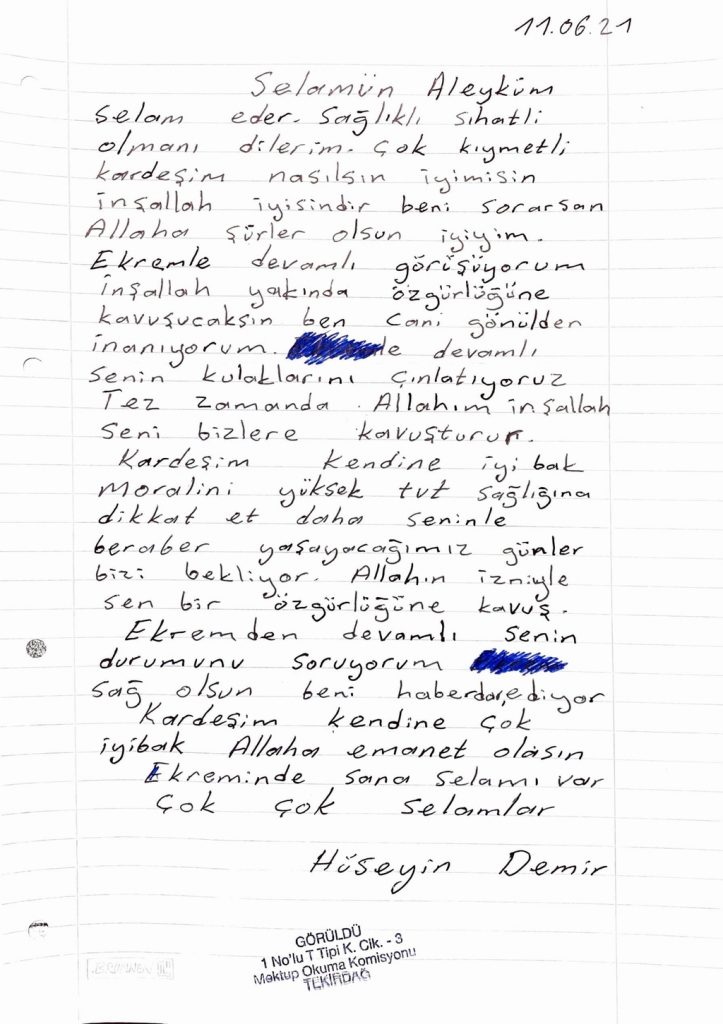 11.06.21
Selamün Aleyküm
selam eder. Sağlıklı sıhatli
olmanı dilerim. Çok kıymetli
kardeşim nasılsın iyimisin
inşallah iyisindir beni sorarsan
Allaha şürler olsun iyiyim.
Ekremle devamlı görüşüyorum
inşallah yakında özgürlüğüne
kavuşucaksın ben cani gönülden
inanıyorum. le devamlı
senin kulaklarını çınlatıyoruz
Tez zamanda. Allahım inşallah
seni bizlere kavuşturur.
Kardeşim kendine iyi bak
moralini yüksek tut sağlığına
dikkat et daha seninle
beraber yaşayacağımız günler
bizi bekliyor. Allahın izniyle
sen bir özgürlüğüne kavuş.
Ekremden devamlı senin
durumunu soruyorum
sağ olsun beni haberdar ediyor
Kardeşim kendine çok
iyibak Allaha emanet olasın
Ekreminde sana selamı var
Çok çok selamlar
Hüseyin Demir
GÖRÜLDÜ
1 No'lu T Tipi K. Cik. - 3
Mektup Okuma Komisyonu
TEKİRDAĞ